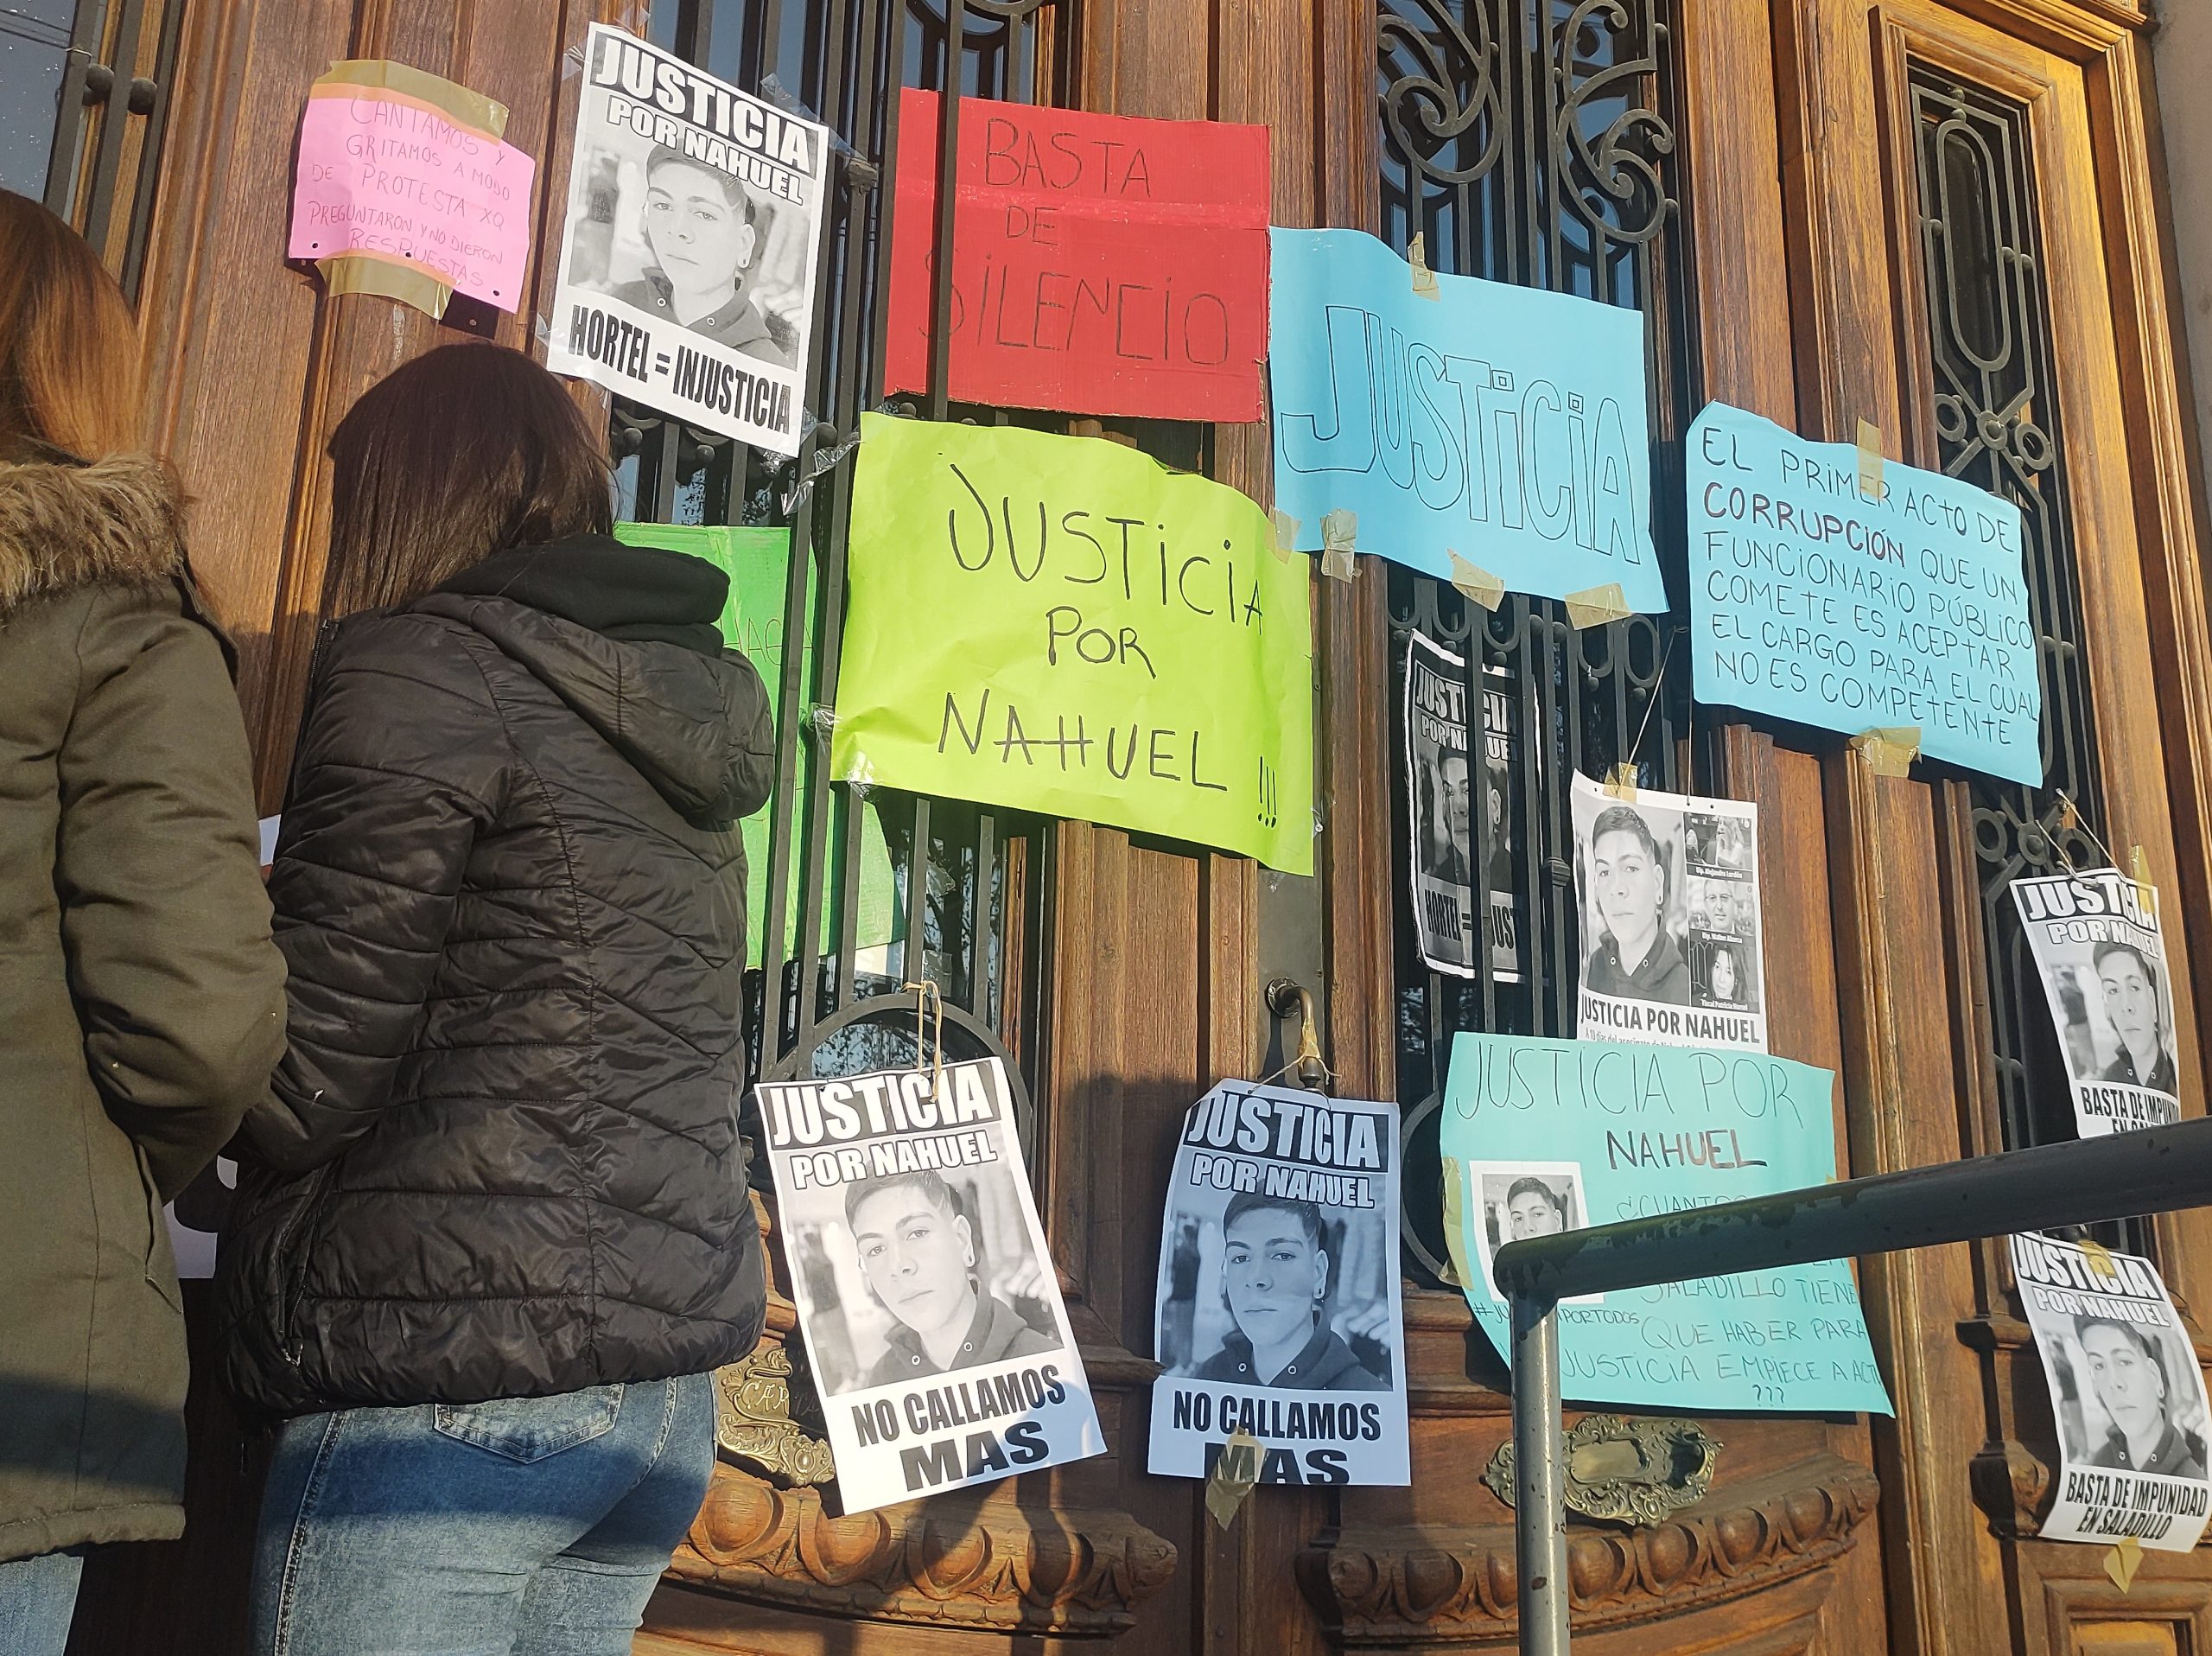 CANTAMOS Y
GRITAMOS A MODO
DE PROTESTA XQ
PREGUNTARON Y NO DIERON
RESPUESTAS
JUSTICIA
POR NAHUEL
HORTEL = INJUSTICIA
BASTA
DE
SILENCIO
JUSTICIA
EL PRIMER ACTO DE
CORRUPCIÓN QUE UN
FUNCIONARIO PÚBLICO
COMETE ES ACEPTAR
EL CARGO PARA EL CUAL
NO ES COMPETENTE
JUSTICIA
POR
NAHUEL !!!
JUSTICIA
POR NAHUEL
HORTEL = JUST
JUSTICIA POR NAHUEL
JUSTICIA
POR NAHUEL
BASTA DE IMPUN
JUSTICIA
POR NAHUEL
NO CALLAMOS
MAS
JUSTICIA
POR NAHUEL
NO CALLAMOS
MAS
JUSTICIA POR
NAHUEL
¿CUANTOS
SALADILLO TIENE
PORTODOS
QUE HABER PARA
JUSTICIA EMPIECE A ACT
???
JUSTICIA
POR NAHUEL
BASTA DE IMPUNIDAD
EN SALADILLO